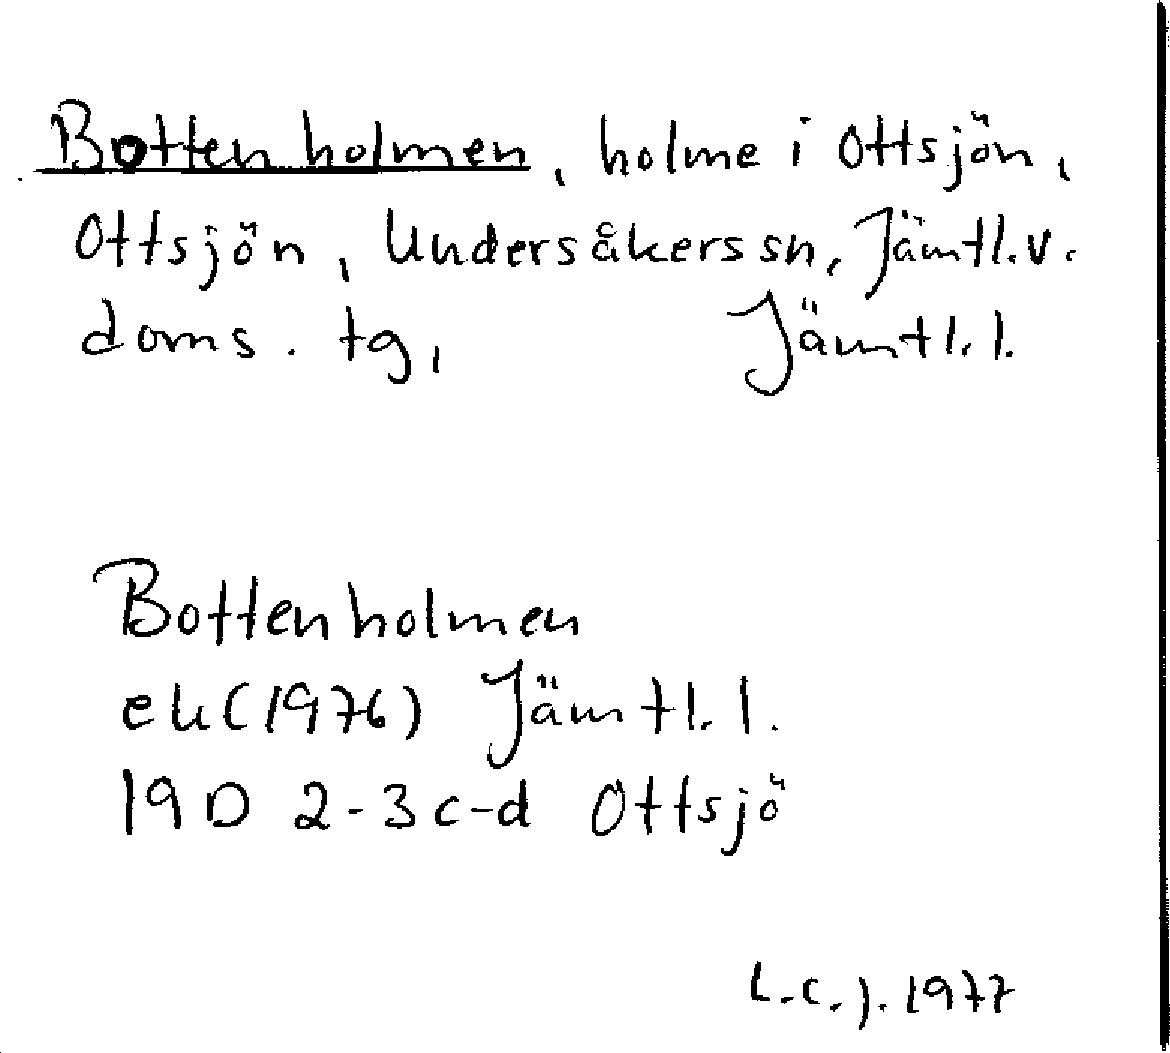 Bottenholmen, holme i Ottsjön,
Ottsjön, Undersåkers sn, Jämtl. v.
doms. tg, Jämtl. l.
Bottenholmen
ek (1976) Jämtl. l.
19D 2-3 c-d Ottsjö
L.C.J. 1977